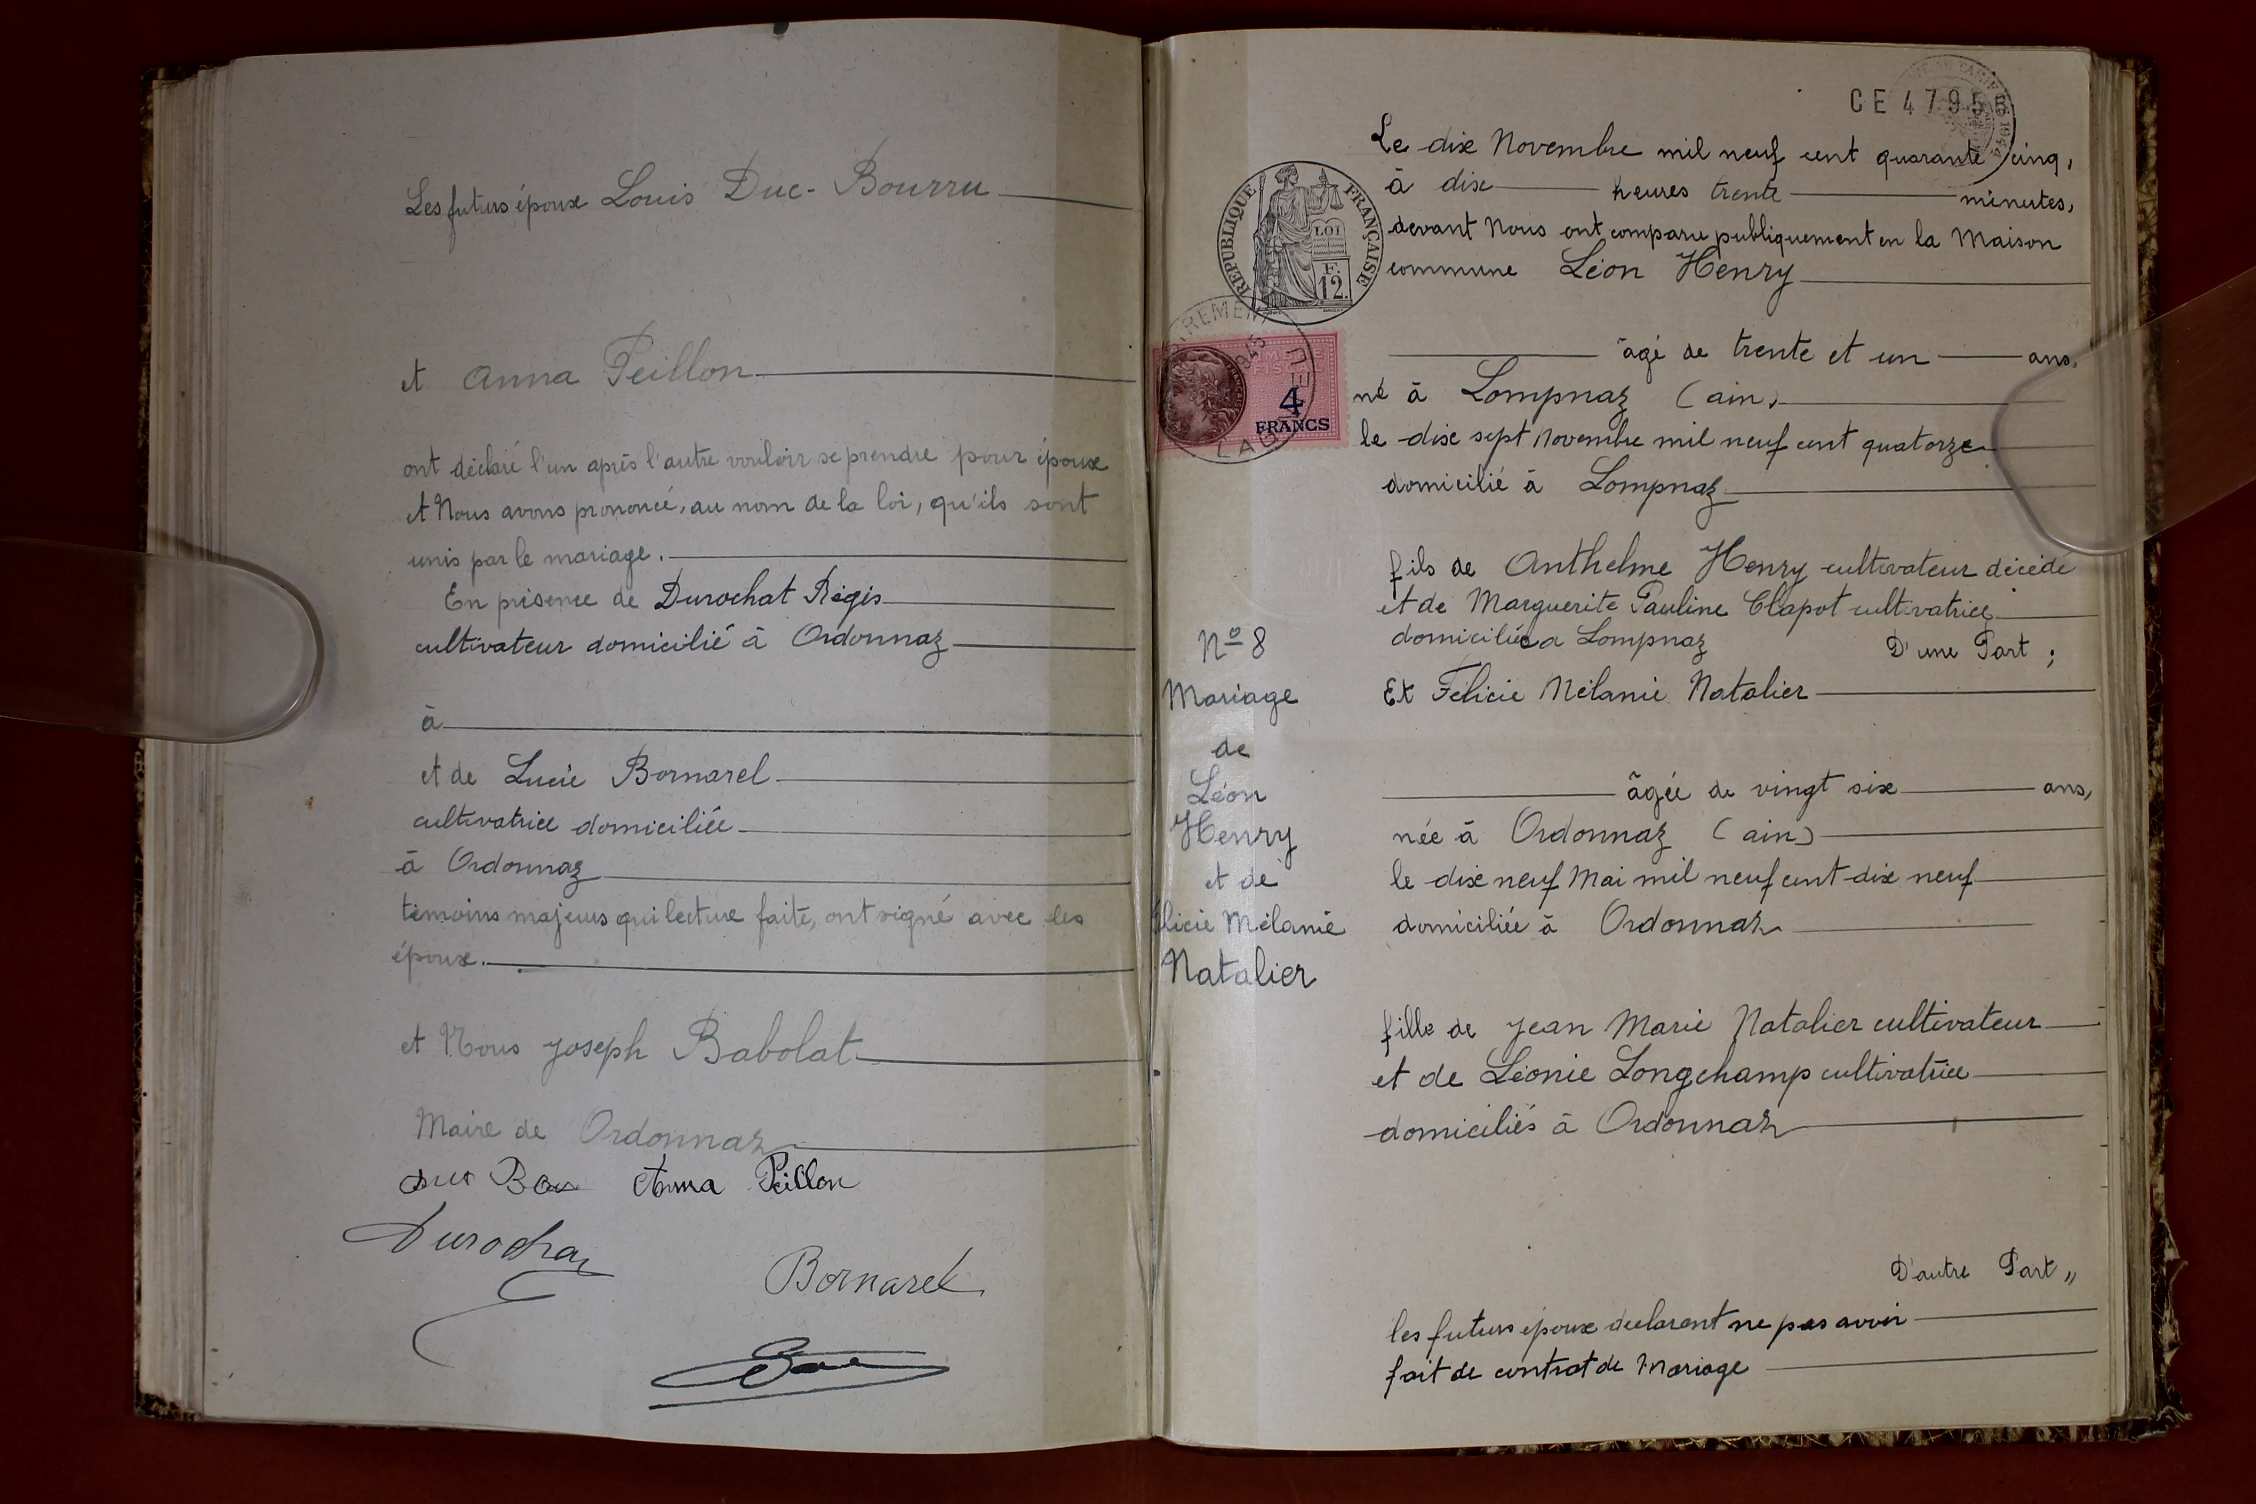 Les futurs époux Louis Duc-Bourru
et Anna Peillon
ont déclaré l'un après l'autre vouloir se prendre pour époux
et Nous avons prononcé, au nom de la loi, qu'ils sont
unis par le mariage.
En présence de Durochat Régis
cultivateur domicilié à Ordonnaz
à
et de Lucie Bornarel
cultivatrice domiciliée
à Ordonnaz
témoins majeurs qui lecture faite, ont signé avec les
époux.
et Nous Joseph Babolat
Maire de Ordonnaz
Anna Peillon
Bornarel
CE 4795
Le dix Novembre mil neuf cent quarante cinq,
à dix heures trente minutes,
devant Nous ont comparu publiquement en la Maison
commune Léon Henry
REPUBLIQUE FRANÇAISE
LOI
F.
12.
4
FRANCS
âgé de trente et un ans,
né à Lompnaz (ain)
le dix sept Novembre mil neuf cent quatorze
domicilié à Lompnaz
fils de Anthelme Henry cultivateur décédé
et de Marguerite Pauline Clapot cultivatrice
domiciliée a Lompnaz D'une Part ;
Et Félicie Mélanie Natalier
âgée de vingt six ans,
née à Ordonnaz (ain)
le dix neuf Mai mil neuf cent dix neuf
domiciliée à Ordonnaz
fille de Jean Marie Natalier cultivateur
et de Léonie Longchamp cultivatrice
domiciliés à Ordonnaz
D'autre Part "
les futurs époux declarent ne pas avoir
fait de contrat de Mariage
Nº 8
Mariage
de
Léon
Henry
et de
élicie Mélanie
Natalier